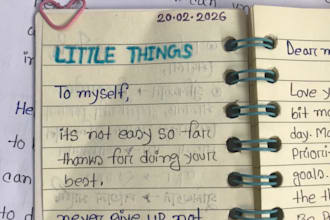 20-02-2026
LITTLE THINGS
To myself,
its not easy so far
thanks for doing your
best.
never give up not
Dear
Love y
bit m
day. Ma
Prioriti
goals.
the
can
He
to
can
to